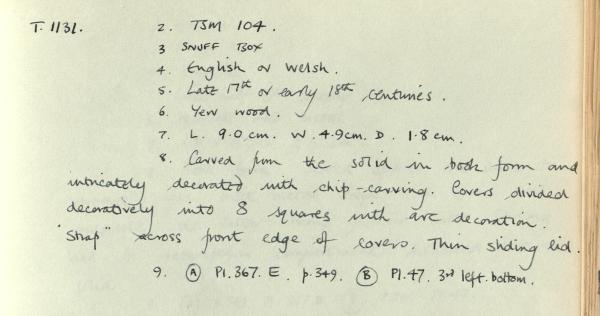 T. 1131. 2. TSM 104.
3 SNUFF BOX
4. English or Welsh.
5. Late 17th or early 18th centuries.
6. Yew wood.
7. L. 9.0 cm. W. 4.9cm. D. 1.8 cm.
8. Carved from the solid in book form and
intricately decorated with chip-carving. Covers divided
decoratively into 8 squares with arc decoration.
"Strap" across front edge of covers. Thin sliding lid.
9. (A) Pl. 367. E. p. 349. (B) Pl. 47. 3rd left. bottom.